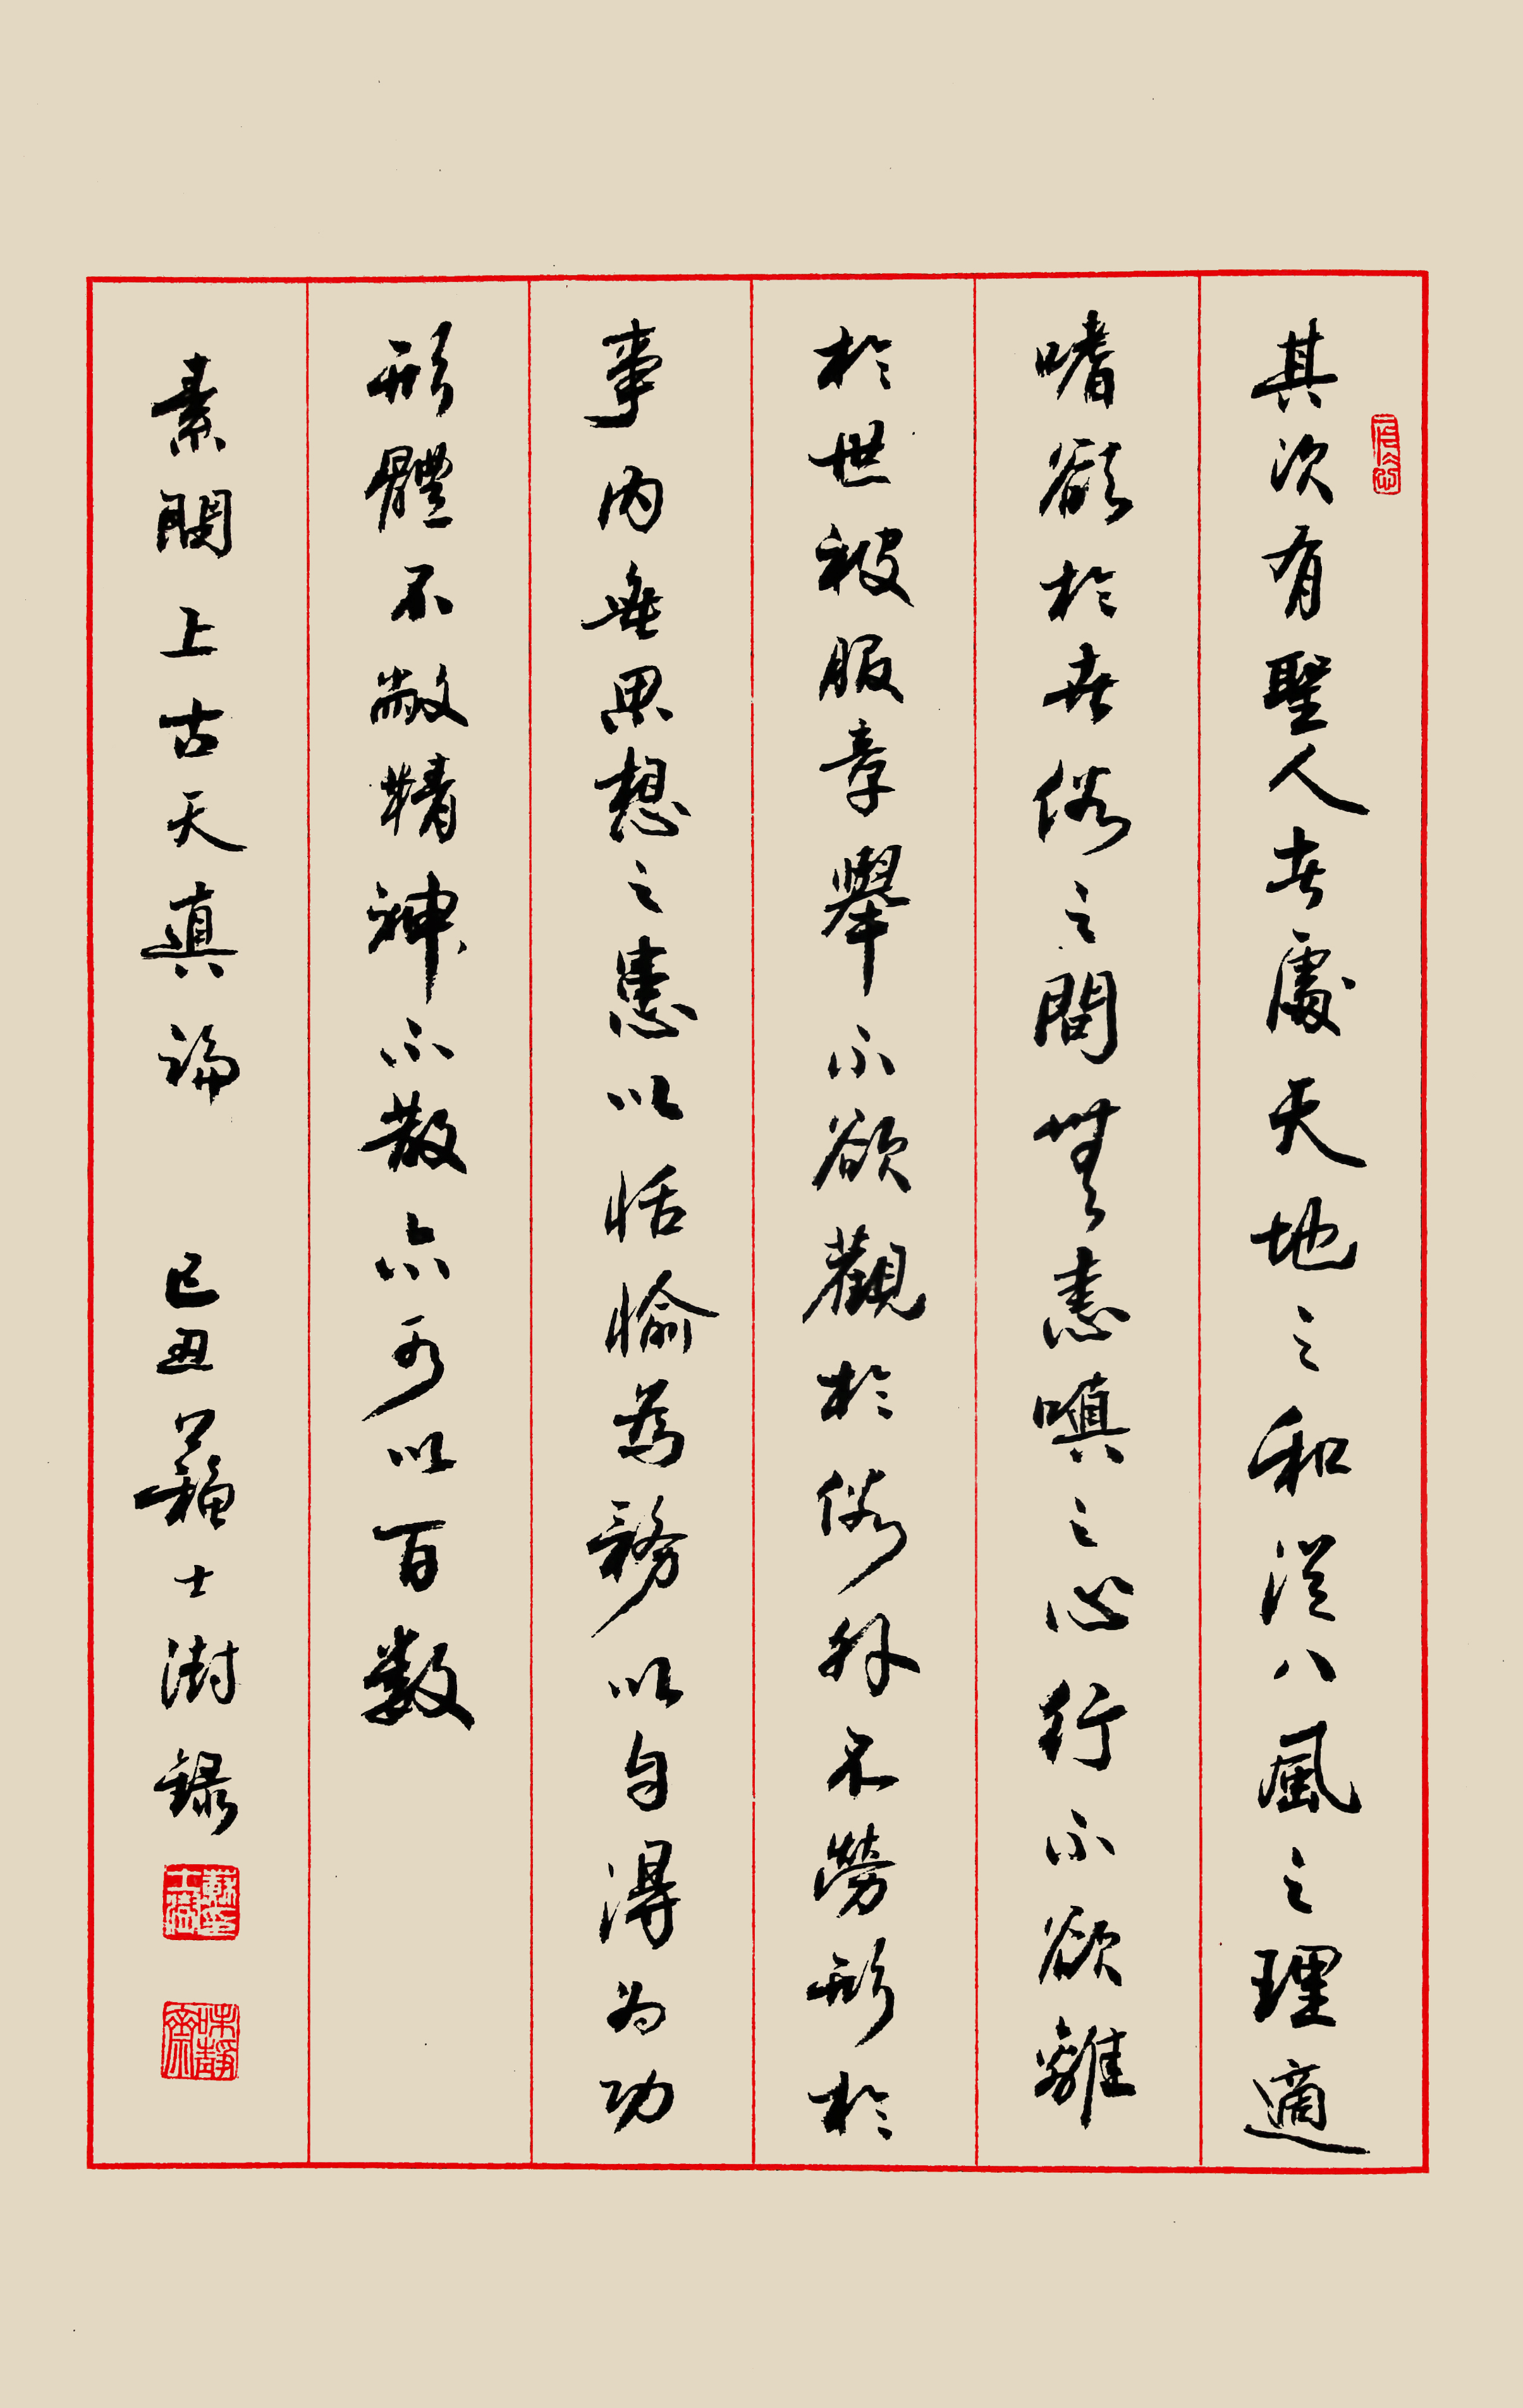 其次有聖人者處天地之和從八風之理適
嗜欲於世俗之間無恚嗔之心行不欲離
於世被服章舉不欲觀於俗外不勞形於
事内無思想之患以恬愉為務以自得为功
形體不敝精神不散亦可以百數
素問上古天真論 己丑蘇士澍錄
蘇印士澍
味靜齋